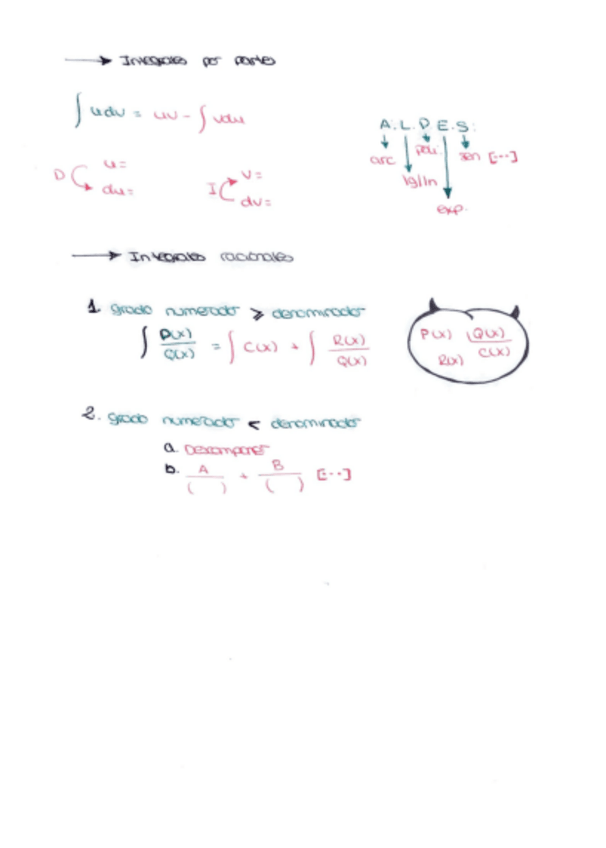 → Integrales por partes
∫ u dv = uv - ∫ v du
A. L. P. E. S.
arc
lg/ln
poli.
exp.
sen [...]
D u=
du=
I v=
dv=
→ Integrales racionales
1. grado numerador ≥ denominador
∫ P(x)/Q(x) = ∫ C(x) + ∫ R(x)/Q(x)
P(x) Q(x)
R(x) C(x)
2. grado numerador < denominador
a. Descomponer
b. A/( ) + B/( ) [...]